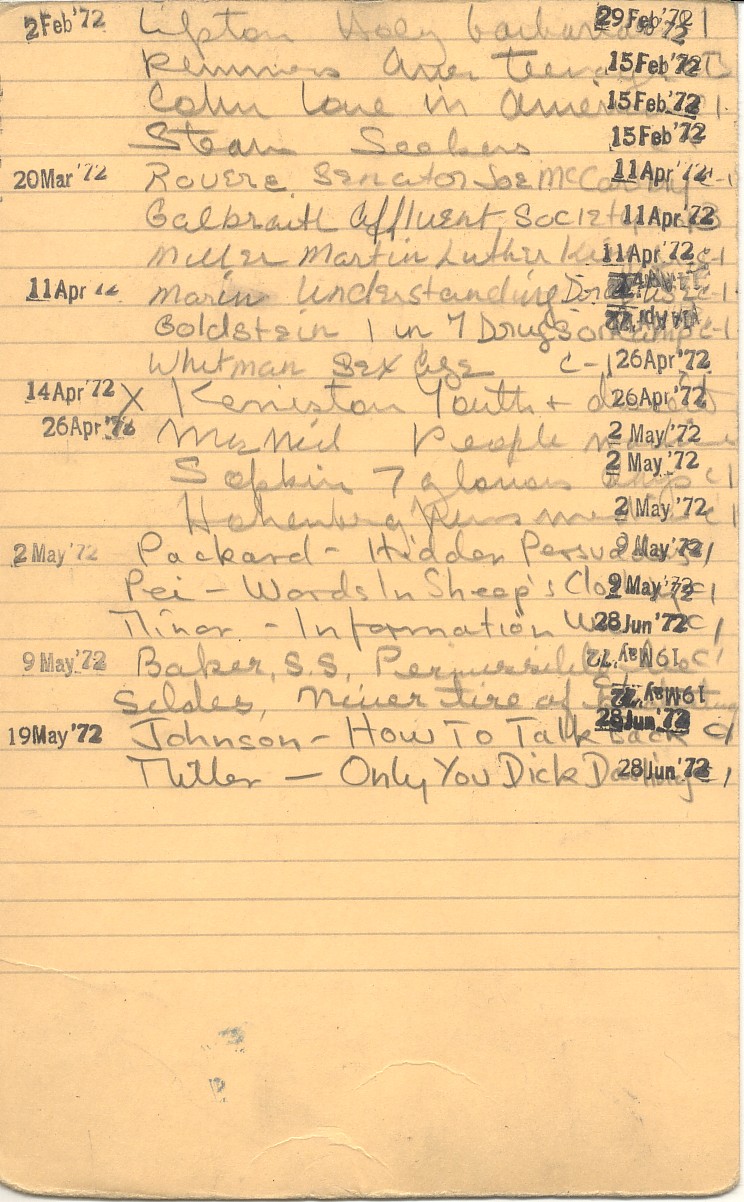 2 Feb '72 Lipton Holy barbarians 29 Feb '72 1
Remmers Amer teenager 15 Feb '72
Cohn Love in America 15 Feb '72 1
Stearn Seekers 15 Feb '72
20 Mar '72 Rovere Senator Joe McCarthy 11 Apr '72 C-1
Galbraith Affluent Society 11 Apr '72
Miller Martin Luther King 11 Apr '72 C-1
11 Apr Marin Understanding Drug Use C-1
Goldstein 1 in 7 Drugs on Campus C-1
Whitman Sex Age C-1 26 Apr '72
14 Apr '72 X Keniston Youth + dissent 26 Apr '72
26 Apr '72 McNeil People machine 2 May '72
Sopkin 7 glorious days C1 2 May '72
Hohenberg News media C1 2 May '72
2 May '72 Packard - Hidden Persuaders 9 May '72 C1
Pei - Words In Sheep's Clothing 9 May '72 C1
Minor - Information War 28 Jun '72 C1
9 May '72 Baker, S.S, Permissible Lie C1 19 May '72
Seldes, Never tire of 19 May '72
28 Jun '72
19 May '72 Johnson - How To Talk Back C1
Miller - Only You Dick Daring 28 Jun '72 C1